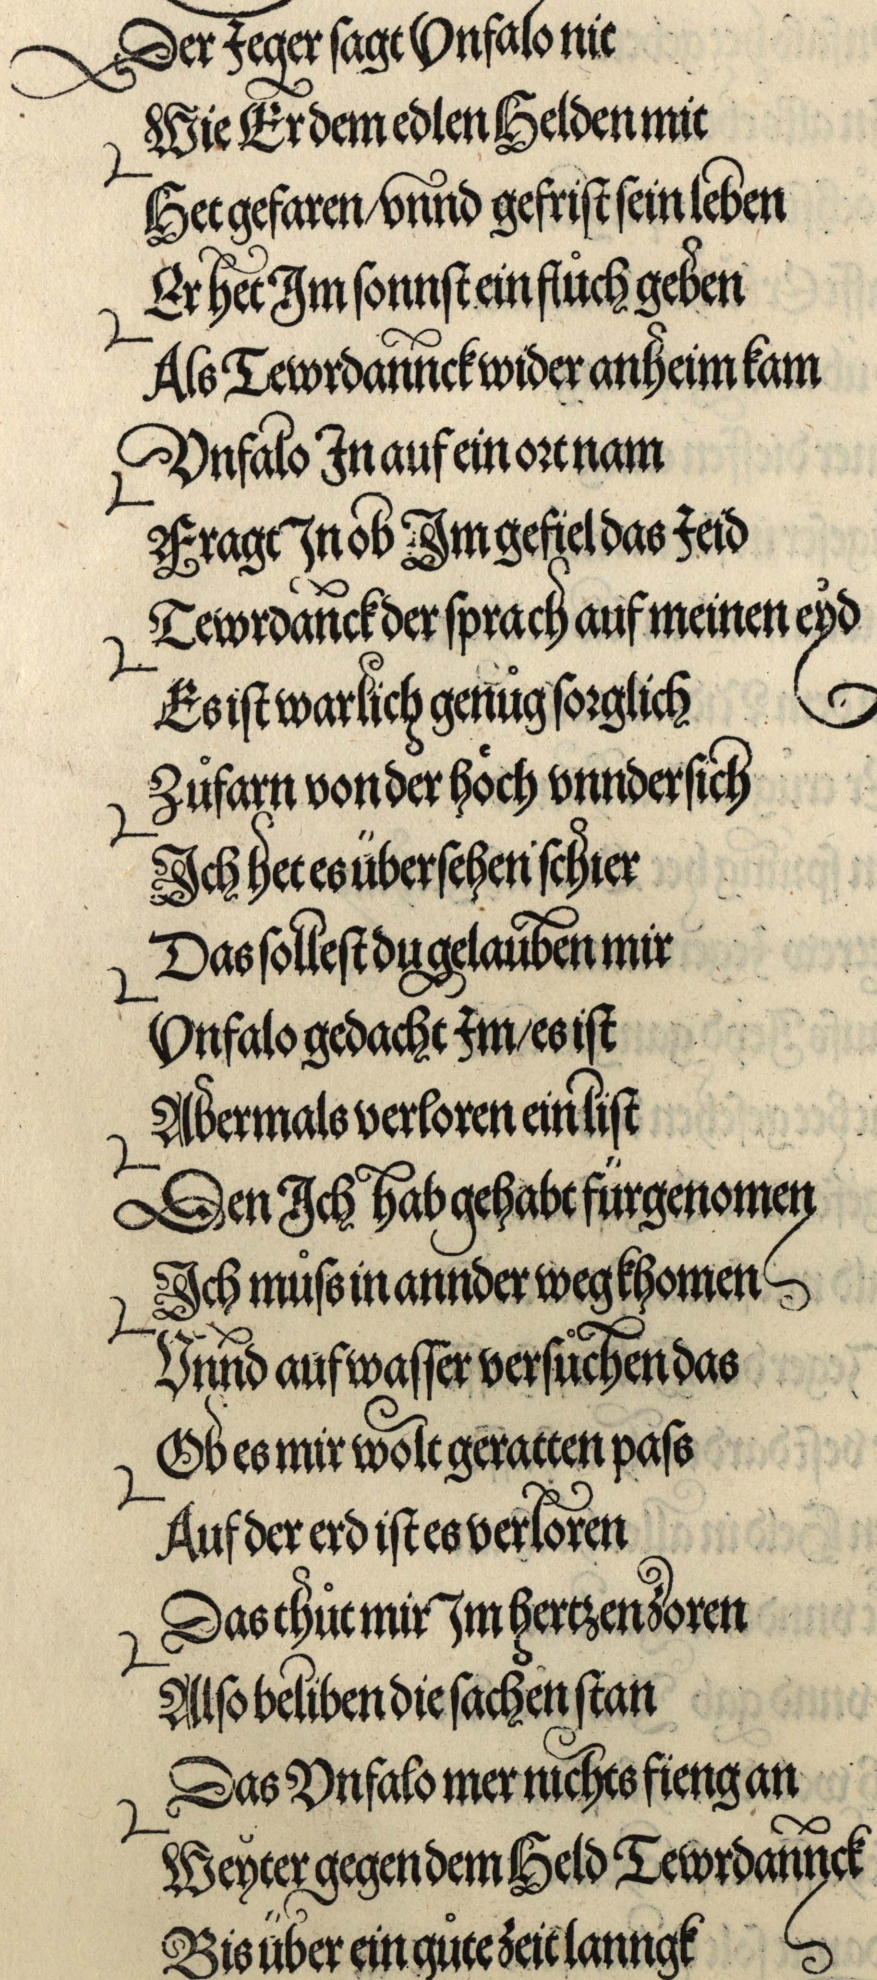 Der Jeger sagt Vnfalo nit
Wie Er dem edlen Helden mit
Het gefaren/vnnd gefrist sein leben
Er het Im sonnst ein flůch geben
Als Tewrdannck wider anheim kam
Vnfalo In auf ein ort nam
Fragt In ob Im gefiel das Jeid
Tewrdannck der sprach auf meinen eyd
Es ist warlich genůg sorglich
Zůfarn von der höch vnndersich
Ich het es übersehen schier
Das sollest du gelauben mir
Vnfalo gedacht Im/es ist
Abermals verloren ein list
Den Ich hab gehabt fürgenomen
Ich můss in annder weg khomen
Vnnd auf wasser versůchen das
Ob es mir wolt geratten pass
Auf der erd ist es verloren
Das thůt mir Im hertzen zoren
Also beliben die sachen stan
Das Vnfalo mer nichts fieng an
Weyter gegen dem Held Tewrdannck
Bis über ein gůte zeit lanngk